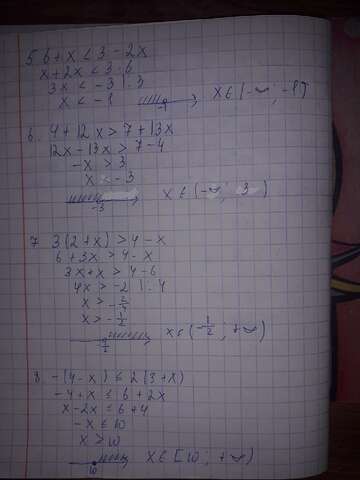 5 6+x<3-2x
x+2x<3-6
3x<-3 |:3
x<-1
-1 x∈(-∞; -1)
6. 4+12x>7+13x
12x-13x>7-4
-x>3
x<-3
-3 x∈(-∞; 3)
7 3(2+x)>4-x
6+3x>4-x
3x+x>4-6
4x>-2 |:4
x>-2/4
x>-1/2
-1/2 x∈(-1/2; +∞)
8. -(4-x)≤2(3+x)
-4+x≤6+2x
x-2x≤6+4
-x≤10
x≥10
10 x∈[10; +∞)